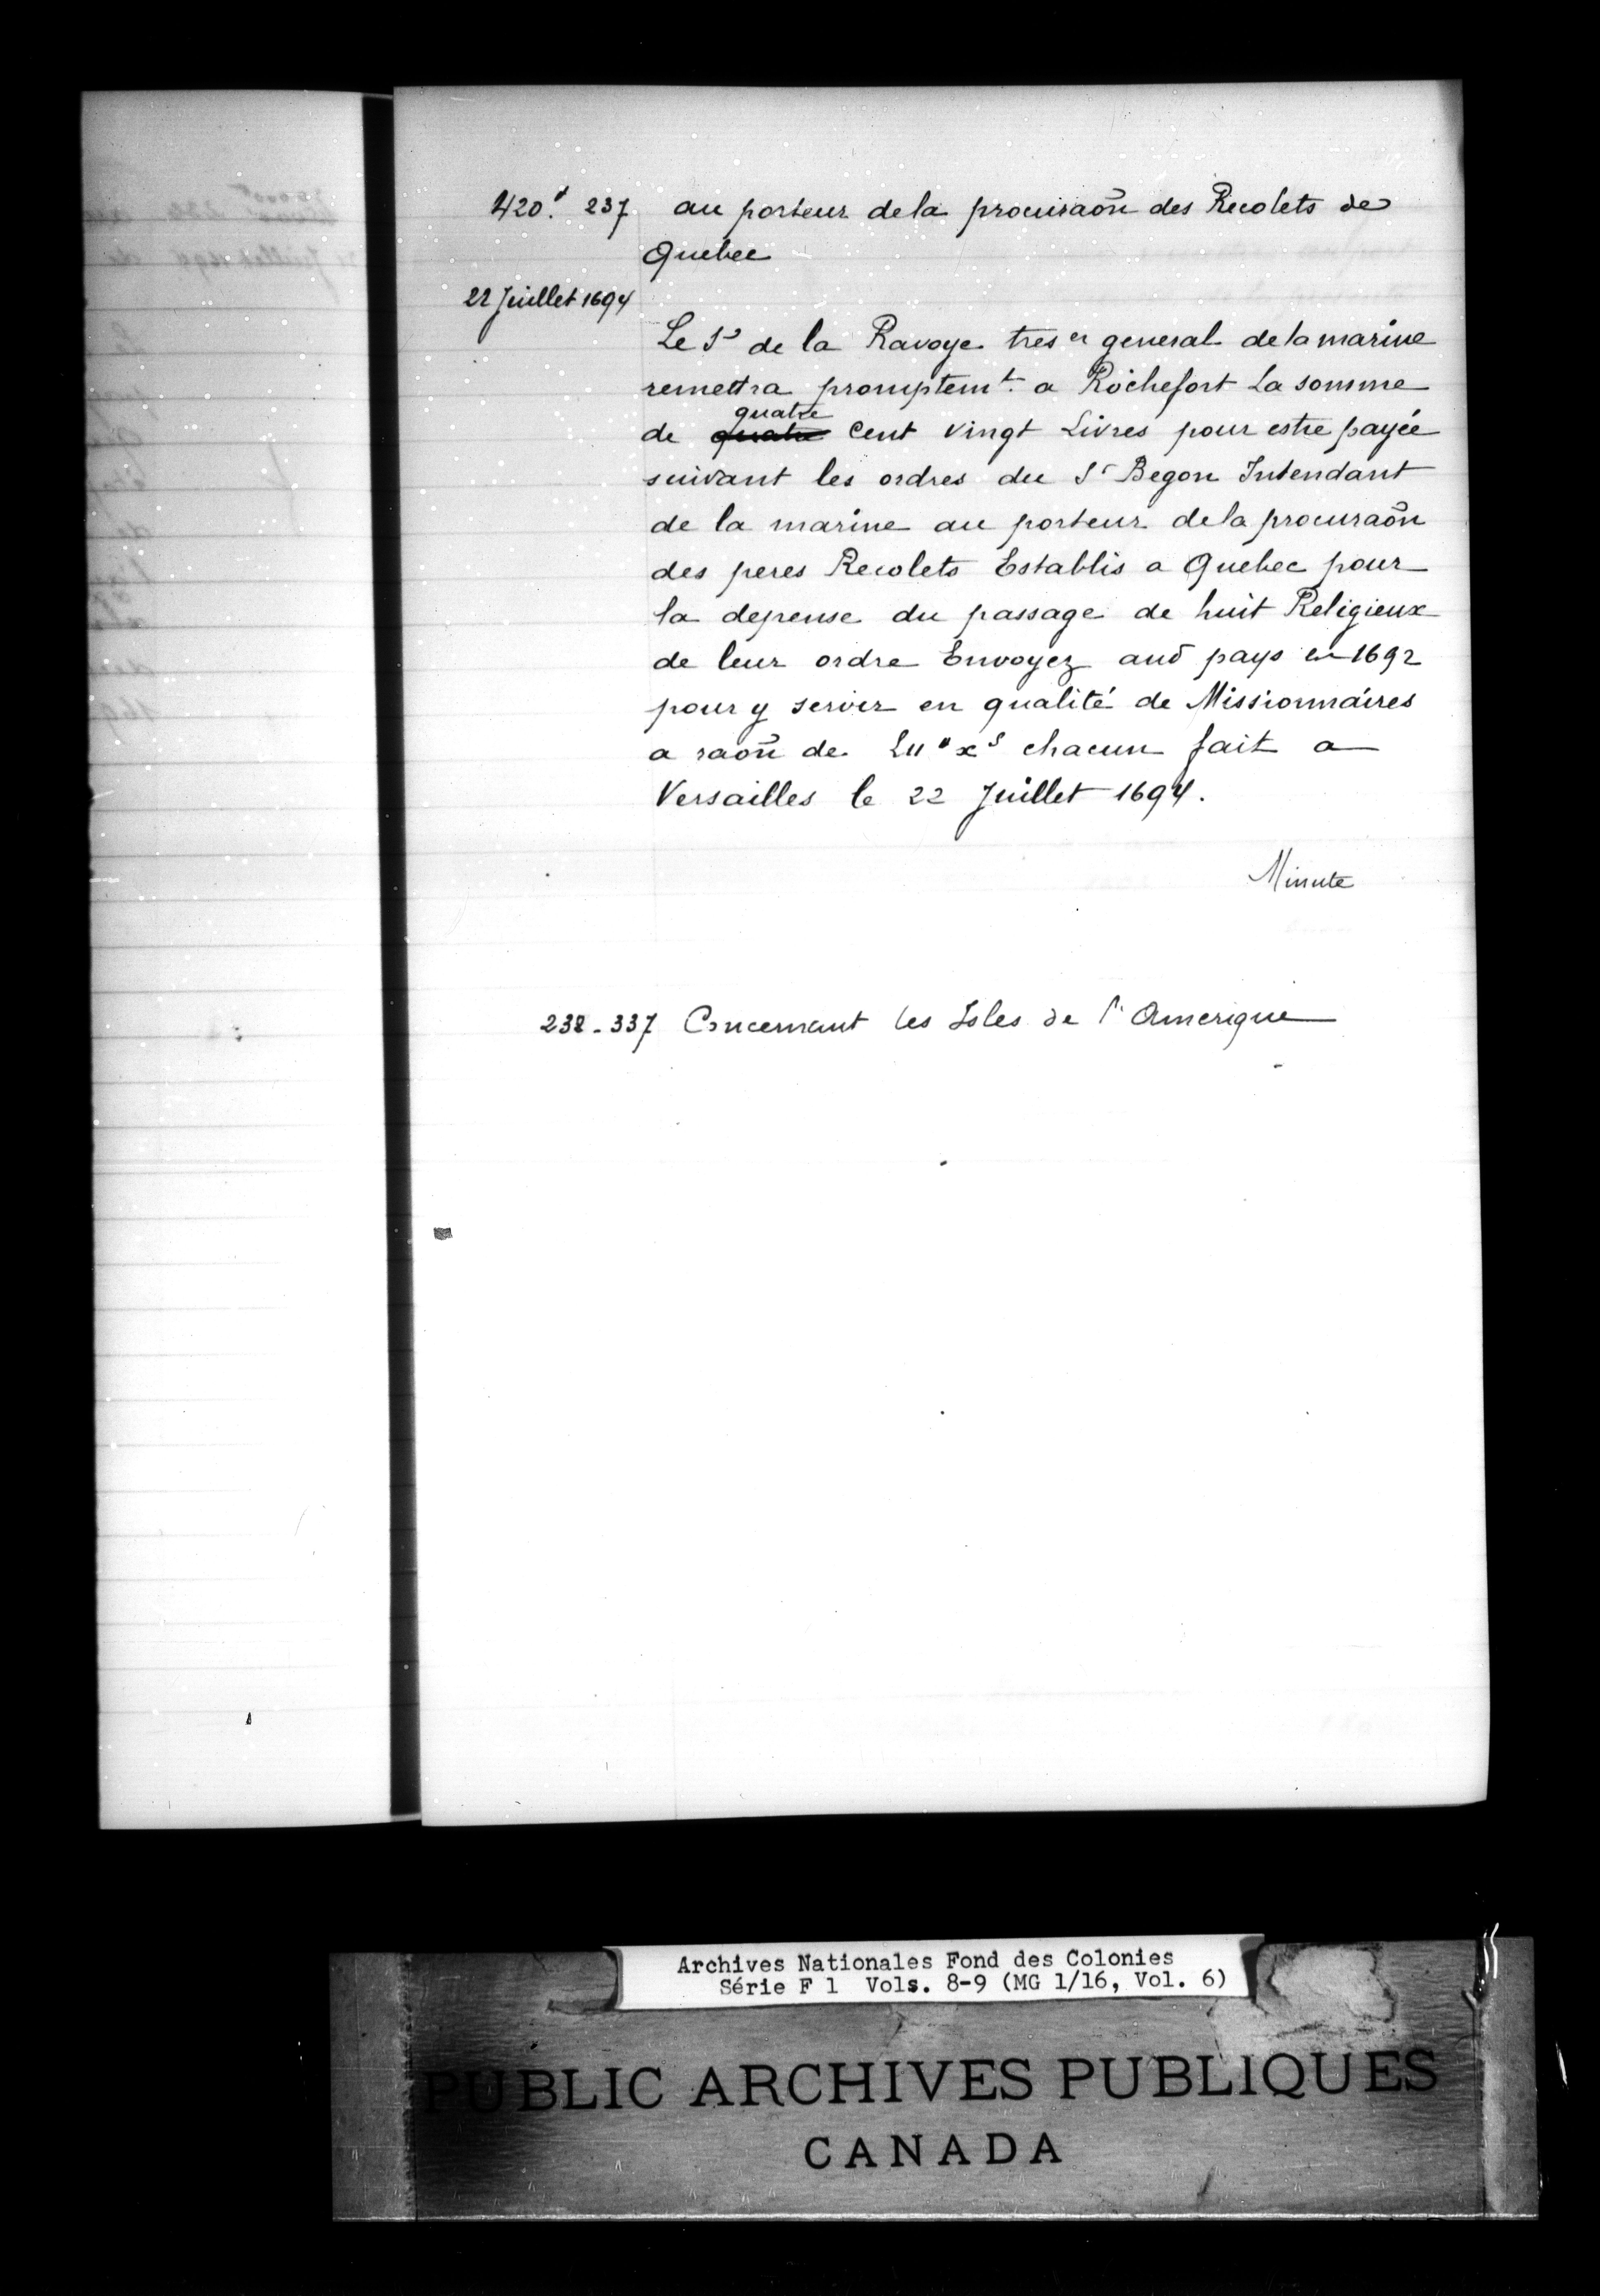 420.# 237 au porteur de la procuraõn des Recolets de
Quebec
22 Juillet 1694
Le Sr de la Ravoye treser general de la marine
remettra promptemt. a Rochefort La somme
quatre
de quatre Cent vingt Livres pour estre payée
suivant les ordres du Sr Begon Intendant
de la marine au porteur de la procuraõn
des peres Recolets Establis a Quebec pour
la depense du passage de huit Religieux
de leur ordre Envoyez aud pays en 1692
pour y servir en qualité de Missionnaires
a raoñ de LII# xs chacun fait a
Versailles le 22 Juillet 1694.
Minute
238-337 Concernant les Isles de l'Amerique
Archives Nationales Fond des Colonies
Série F 1 Vols. 8-9 (MG 1/16, Vol. 6)
PUBLIC ARCHIVES PUBLIQUES
CANADA